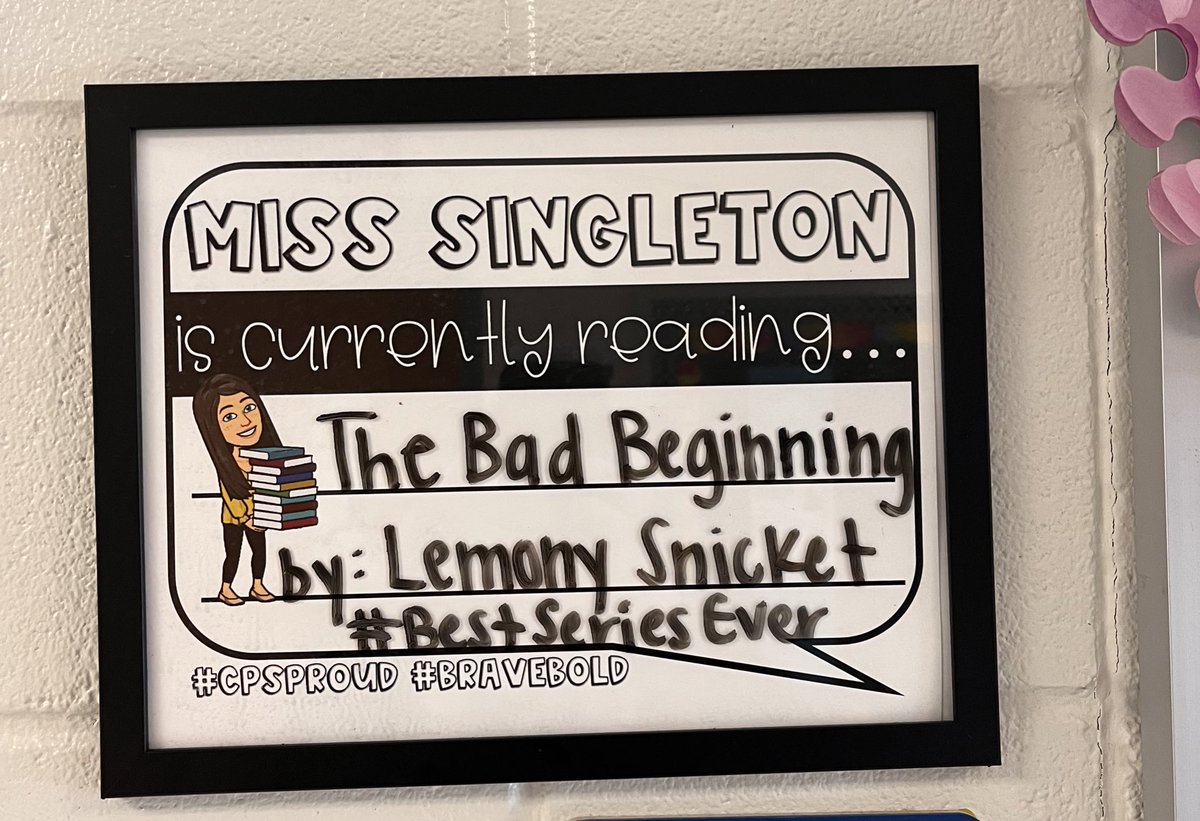 MISS SINGLETON
is currently reading...
The Bad Beginning
by: Lemony Snicket
#BestSeriesEver
#CPSPROUD #BRAVEBOLD